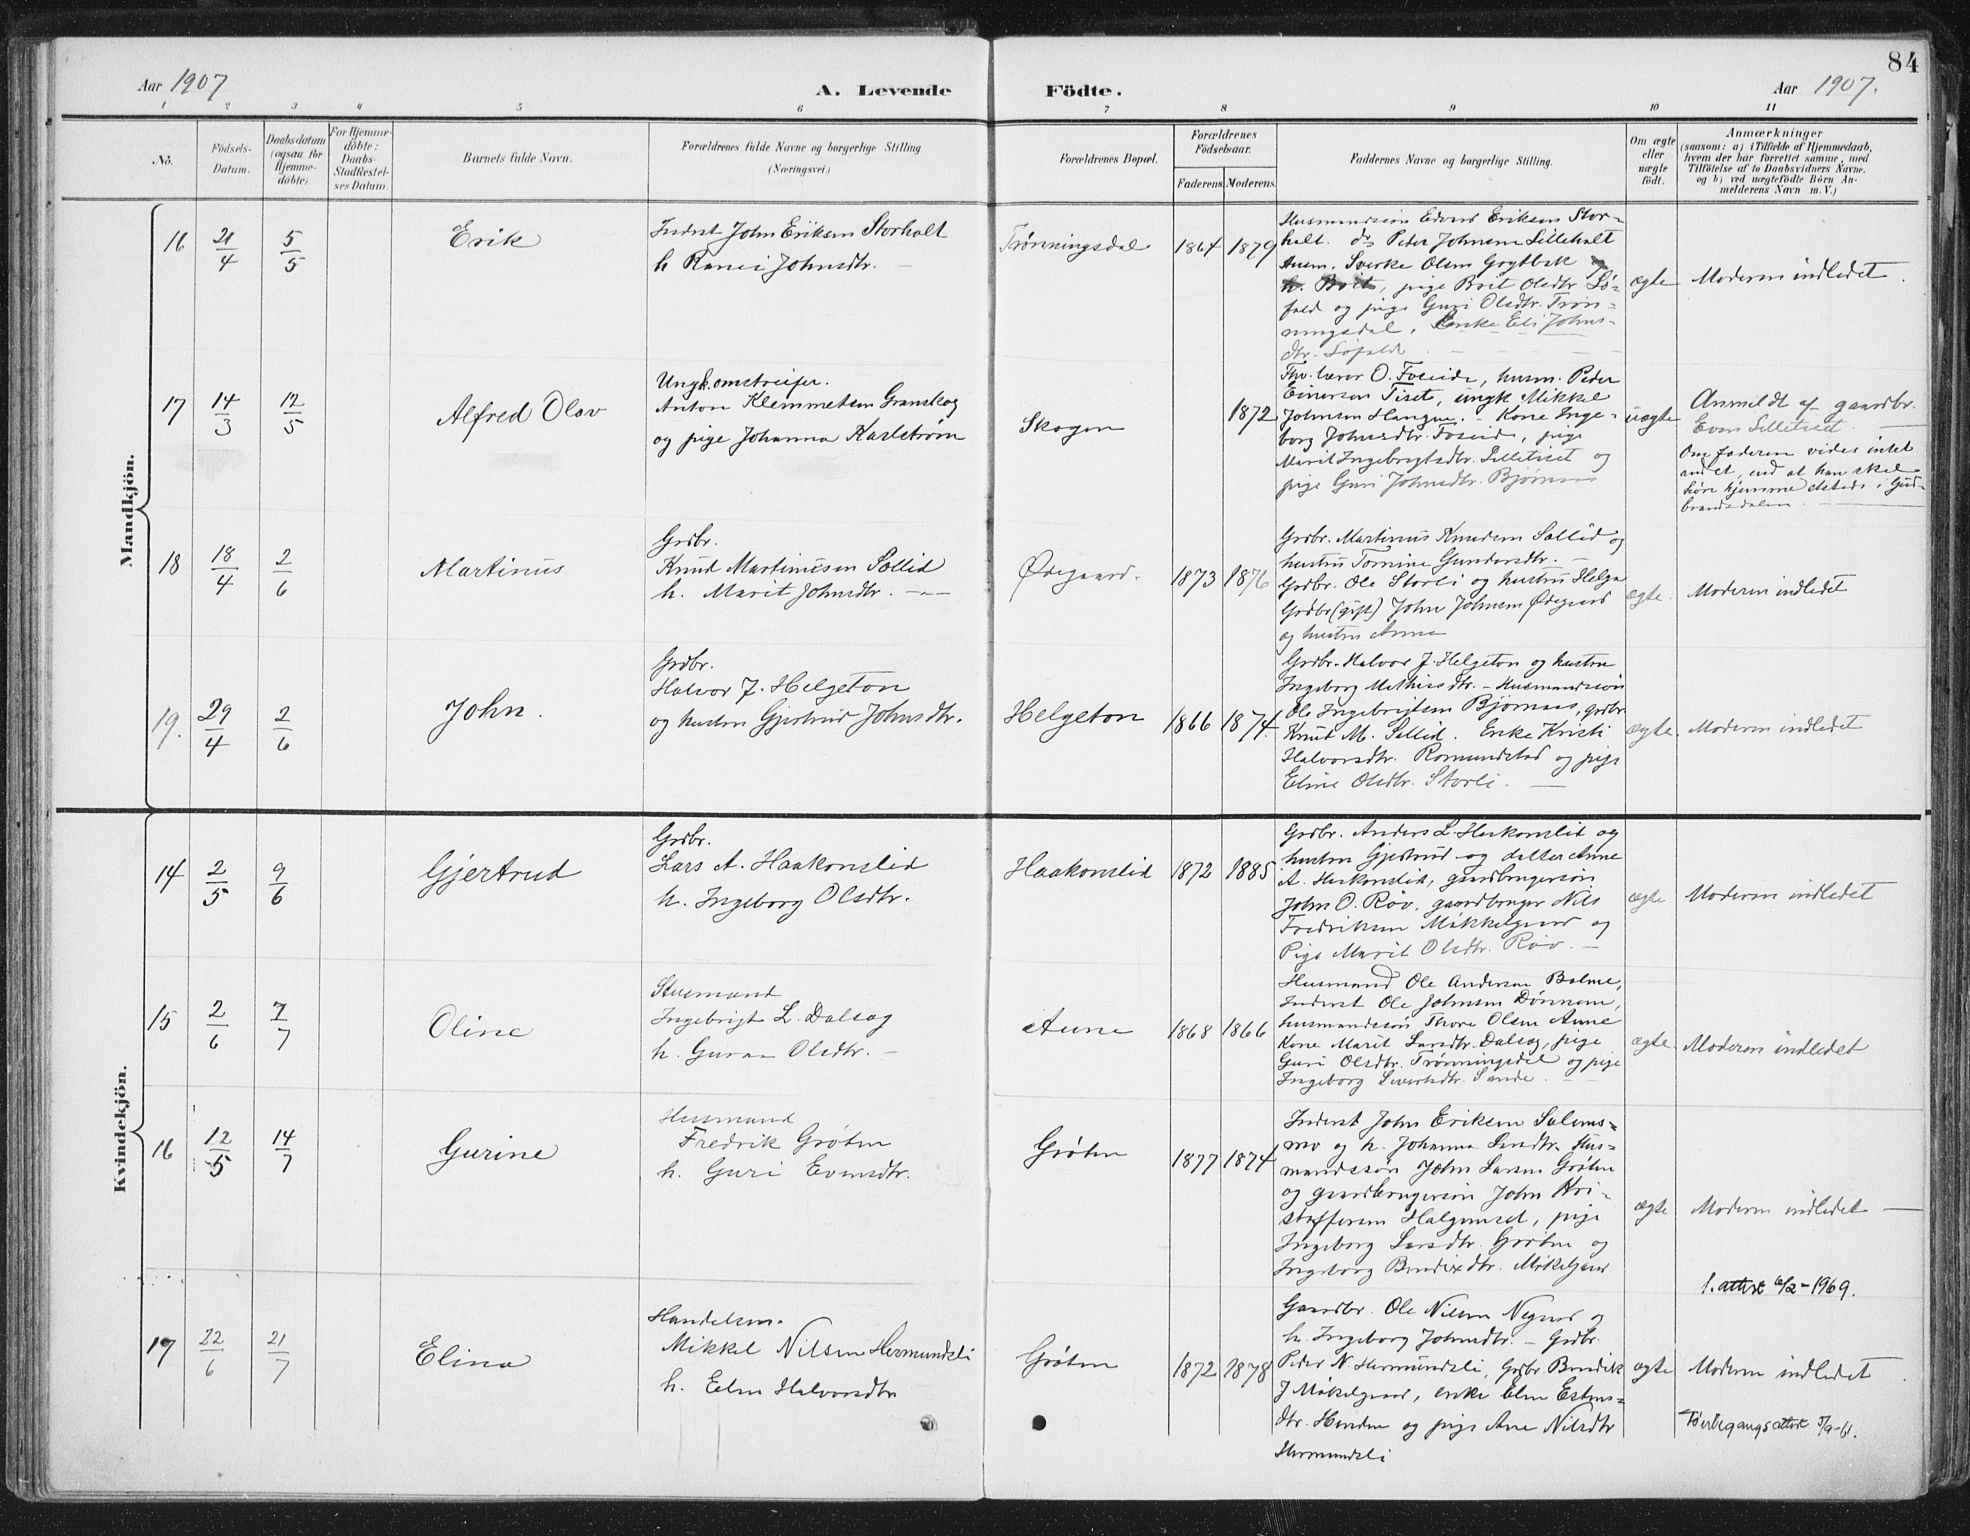 84
Aar 1907
A. Levende Födte.
Aar 1907.
1 2 3 4 5 6 7 8 9 10 11
No.
Födsels-
Datum.
Daabsdatum
(ogsaa for
Hjemme-
döbte).
For Hjemme-
döbte:
Daabs-
Stadfæstel-
ses Datum.
Barnets fulde Navn.
Forældrenes fulde Navne og borgerlige Stilling
(Næringsvei.)
Forældrenes Bopæl.
Forældrenes
Födselsaar.
Faderens. Moderens.
Faddernes Navne og borgerlige Stilling.
Om ægte
eller
uægte
födt.
Anmærkninger
(saasom: a) i Tilfælde af Hjemmedaab,
hvem der har forrettet samme, med
Tilföielse af to Daabsvidners Navne,
og b) ved uægtefödte Börn An-
melderens Navn m. V.)
Mandkjön.
16
21/4
5/5
Erik
Inderst John Eriksen Storholt
h Ranei Johnsdtr.
Trønningsdal
1864 1879
Husmandssøn Edvard Eriksen Stor-
holt. do Peder Johnsen Lilleholt
Sverke Olsen
h. Brit, pige Brit Olsdtr. Sø-
fald og pige Guri Olsdtr. Trøn-
ningsdal. Enke Eli Johns-
dtr. Søfald
ægte
Moderen indledet
17
14/3
12/5
Alfred Olav
Ungk. omstreifer.
Anton Klemmetsen Granskog
og pige Johanna Karlstrøm
Skogen
1872
Fhv. lærer O. Foseide, husm. Peder
Einersen Tiset, ungk Mikkel
Johnsen Haugen. - Kone Inge-
borg Johnsdtr. Foseid, pige
Marit Ingebrigtsdtr. Lilletiset og
pige Guri Johnsdtr. Bjørnaas
uægte
Anmeldt af gaardbr.
Even Lilletiset.
Om faderen vides intet
andet, end at han skal
høre hjemme etsteds i Gud-
brandsdalen.
18
18/4
2/6
Martinus
Grdbr.
Knud Martinussen Sollid
h. Marit Johnsdtr.
Ødegaard.
1873 1876
Grdbr. Martinus Knudsen Sollid og
hustru Tomine Gundersdtr. -
Grdbr. Ole Storli og hustru Helga
Grdbr (gift) John Johnsen Ødegaard
og hustru Anna
ægte.
Moderen indledet
19.
29/4
2/6
John.
Grdbr.
Halvor J. Helgeton
og hustru Gjertrud Johnsdtr.
Helgeton
1866 1874.
Grdbr. Halvor J. Helgeton og hustru
Ingeborg Mathisdtr. - Husmandssøn
Ole Ingebrigtsen Bjørnaas, grdbr.
Knud M. Sollid. Enke Kristi
Halvorsdtr. Romundstad og pige
Eline Olsdtr. Storli. -
ægte.
Moderen indledet
Kvindekjön.
14
2/5
9/6
Gjertrud
Grdbr.
Lars A. Haakonslid
h. Ingeborg Olsdtr.
Haakonslid
1872 1885
Grdbr. Anders L. Haakonslid og
hustru Gjertrud og datter Anne
A. Haakonslid, gaardbrugersøn
John O. Røv, gaardbruger Nils
Fredriksen Mikkelgaard og
Pige Marit Olsdtr. Røv. -
ægte
Moderen indledet
15
2/6
7/7
Oline
Stuemand
Ingebrigt L. Dalsøg
h. Guraa Olsdtr. -
Aune
1868 1866
Husmand Ole Andersen Bolme,
Inderst Ole Johnsen Dønnem,
husmandssøn Thore Olsen Aune
Kone Marit Larsdtr. Dalsøg, pige
Guri Olsdtr. Trønningsdal og pige
Ingeborg Sivertsdtr. Sande.
ægte.
Moderen indledet
16
12/5
14/7
Gurine
Husmand
Fredrik Grøten
h. Guri Evensdtr.
Grøten
1877 1874
Inderst John Eriksen Solems-
mo og h. Johanna Larsdtr. Hus-
mandssøn John Larsen Grøten
og gaardbrugersøn John Kri-
stoffersen Halgunset, pige
Ingeborg Larsdtr. Grøten og
Ingeborg Bendixdtr. Mikelgaard
ægte
Moderen indledet
1. attest 6/2-1969.
17
22/6
21/7
Elina
Handelsm.
Mikkel Nilsen Hermundsli
h. Elen Halvorsdtr
Grøten
1872 1878
Gaardbr. Ole Nilsen Negard og
h. Ingeborg Johnsdtr. - Grdbr.
Peder N. Hermundsli, Grdbr. Bendik
J Mikelgaard, enke Elen Estens-
dtr. Henden og pige Ane Nilsdtr
Hermundsli
ægte
Moderen indledet